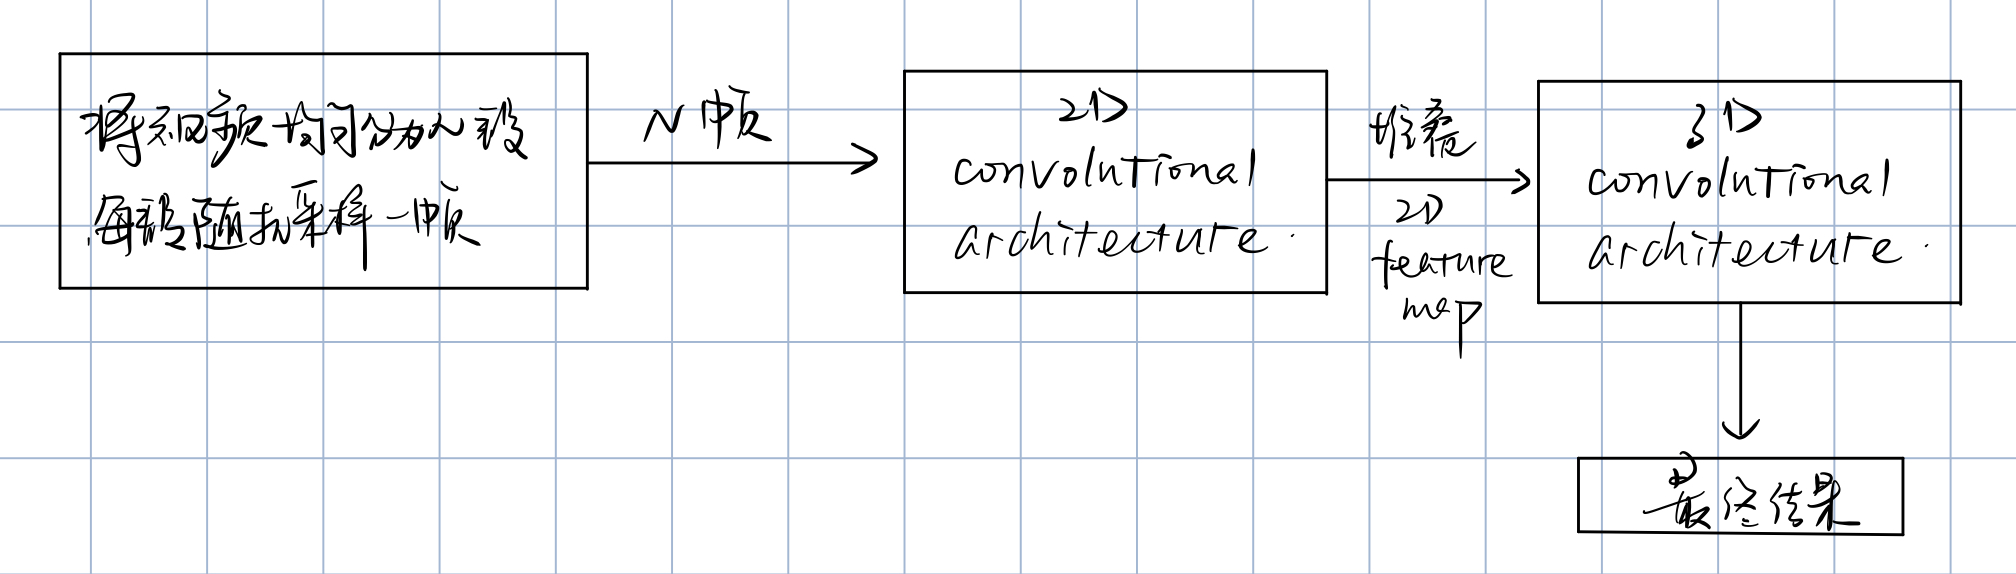 将视频均匀分为N段
每段随机采样一帧
N帧
2D
convolutional
architecture.
堆叠
2D
feature
map
3D
convolutional
architecture.
最终结果